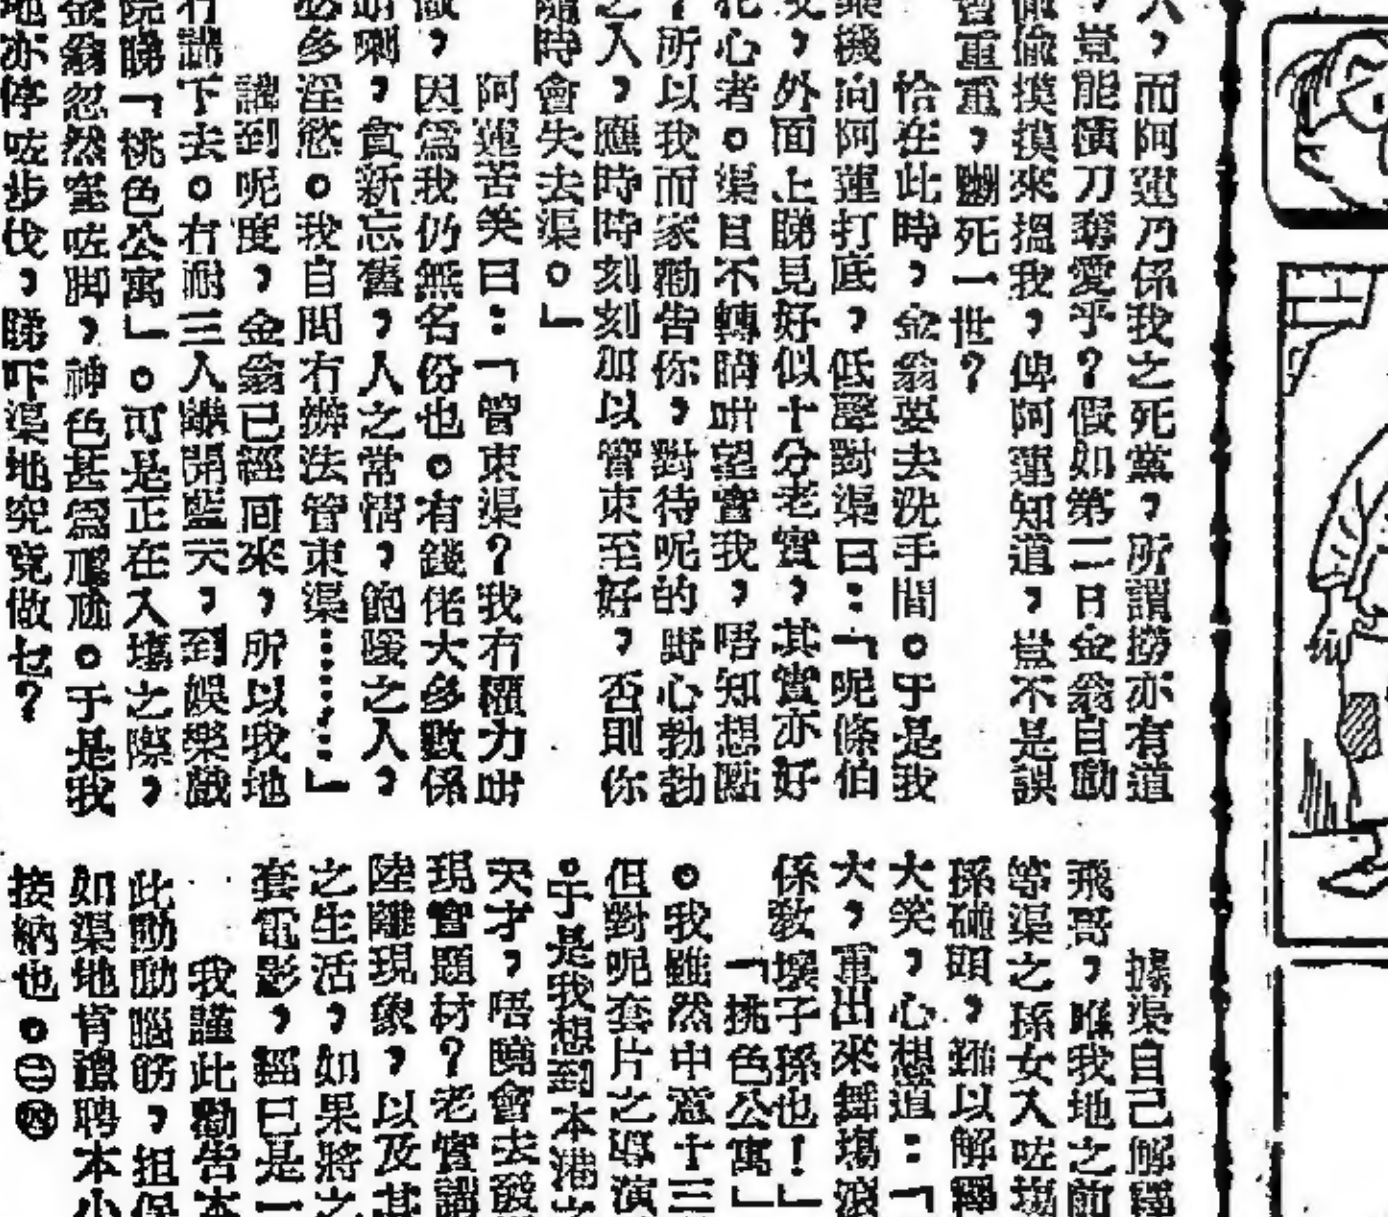 人，而阿蓮乃係我之死黨，所謂撈亦有道
，豈能橫刀奪愛乎？假如第二日金翁自動
偷偷摸摸來搵我，俾阿蓮知道，豈不是誤
會重重，嬲死一世？
恰在此時，金翁要去洗手間。于是我
乘機向阿蓮打底，低聲對渠曰：「呢條伯
父，外面上睇見好似十分老實，其實亦好
花心者。渠目不轉睛咁望實我，唔知想點
？所以我而家勸告你，對待呢的野心勃勃
之人，應時時刻刻加以管束至好，否則你
隨時會失去渠。」
阿蓮苦笑曰：「管束渠？我冇權力咁
做，因為我仍無名份也。有錢佬大多數係
咁㗎，貪新忘舊，人之常情，飽暖之人，
必多淫慾。我自問冇辦法管束渠……」
講到呢度，金翁已經回來，所以我地
冇講下去。冇耐三人離開藍天，到娛樂戲
院睇「桃色公寓」。可是正在入場之際，
金翁忽然窒咗脚，神色甚為尷尬。于是我
地亦停咗步伐，睇吓渠地究竟做乜？
據渠自己解釋
飛哥，喺我地之前
等渠之孫女入咗場
孫碰頭，難以解釋
大笑，心想道：「
大，重出來舞場滾
係教壞子孫也！」
「桃色公寓」
。我雖然中意十三
但對呢套片之導演
。于是我想到本港之
天才，唔曉會去發
現實題材？老實講
陸離現象，以及其
之生活，如果將之
套電影，經已是一
我謹此勸告本
此動動腦筋，担保
如渠地肯禮聘本小
接納也。㊁㊃